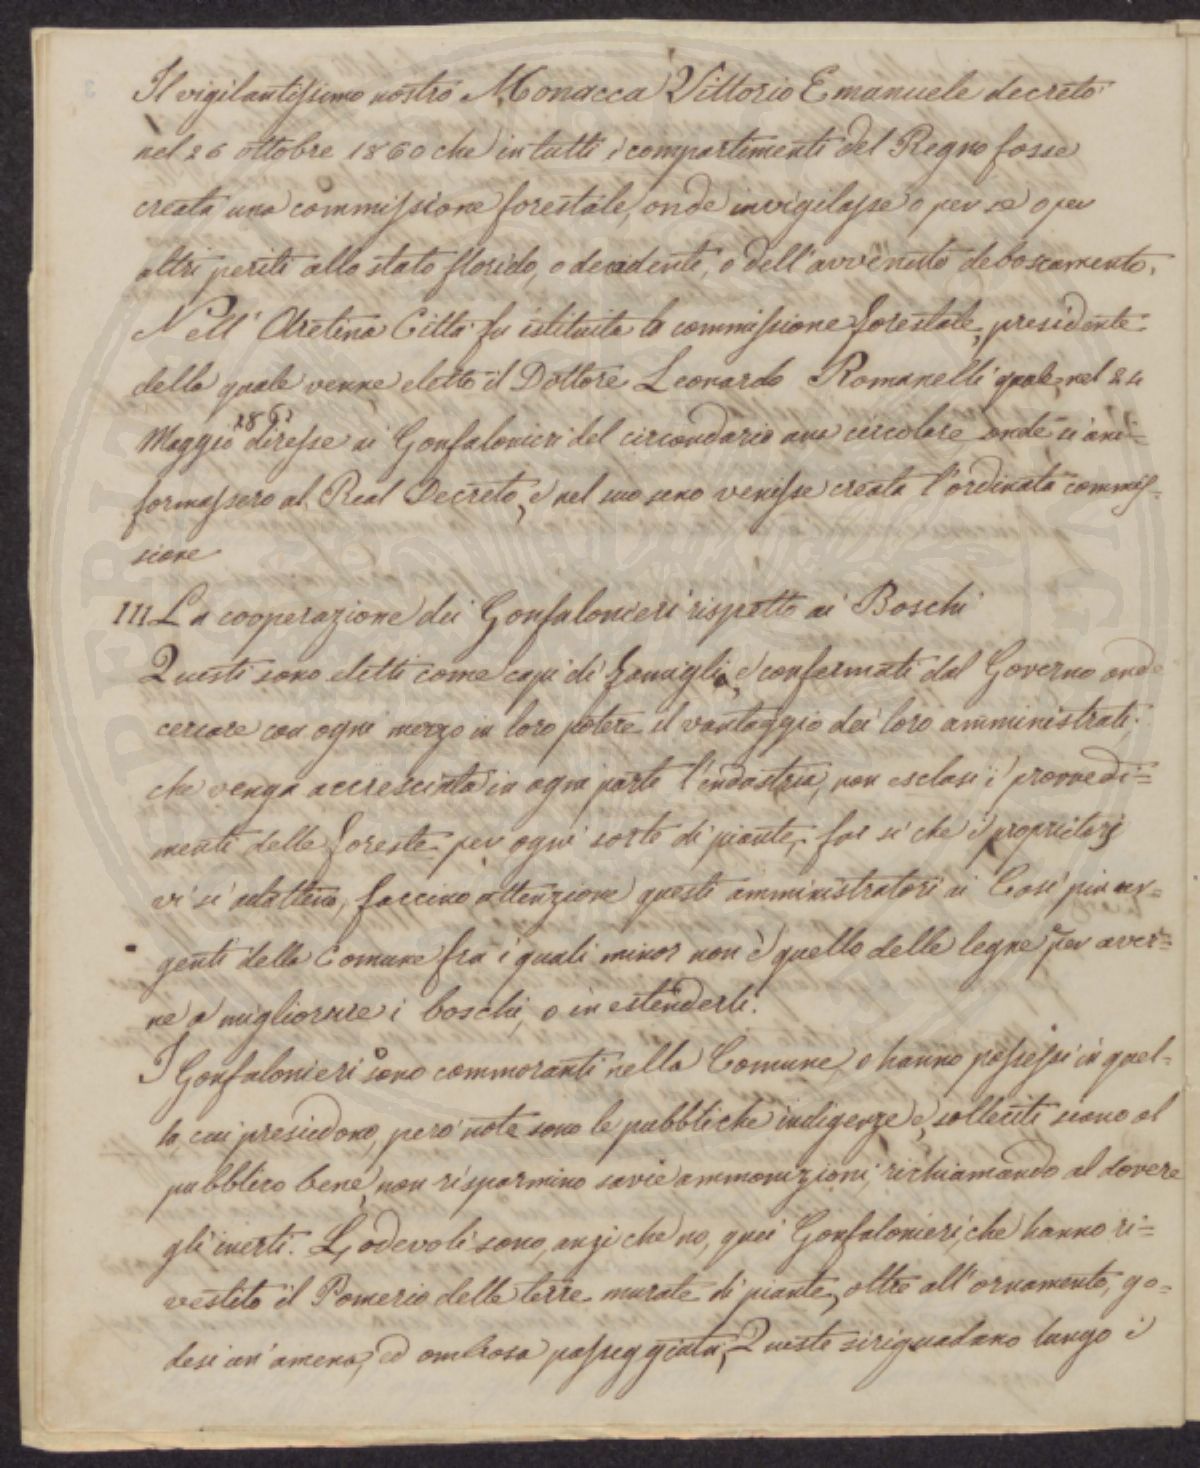 Il vigilantissimo nostro Monacca Vittorio Emanuele decretò
nel 26 ottobre 1860 che in tutti i compartimenti del Regno fosse
creata una commissione forestale, onde invigilasse o per se o per
altri periti allo stato florido, o decadente, o dell'avvenuto deboscamento.
Nell' Aretina Città fu istituita la commissione forestale, presidente
della quale venne eletto il Dottore Leonardo Romanelli quale nel 24
Maggio 1861 diresse ai Gonfalonieri del circondario una circolare onde si uni=
formassero al Real Decreto, e nel suo seno venisse creata l'ordinata commis=
sione
III La cooperazione dei Gonfalonieri rispetto ai Boschi
Questi sono eletti come capi di Famiglia, e confermati dal Governo onde
cercare con ogni mezzo in loro potere il vantaggio dei loro amministrati:
che venga accresciuta in ogni parte l'industria, non esclusi i provvedi=
menti delle foreste per ogni sorte di piante, far sì che i proprietarj
vi si adattino, faccino attenzione questi amministratori ai Casi più ur=
genti della Comune fra i quali minor non è quello delle legne per aver=
ne a migliorare i boschi, o in estenderli.
I Gonfalonieri o sono commoranti nella Comune, o hanno possessi in quel=
la, cui presiedono, però note sono le pubbliche indigenze e solleciti siano al
pubblico bene, non risparmino savie ammonizioni, richiamando al dovere
gli inerti. Lodevoli sono, anzi che no, quei Gonfalonieri, che hanno ri=
vestito il Pomerio delle terre murate di piante, oltre all'ornamento, go=
desi un'amena, ed ombrosa passeggiata, Queste si riguardano lungo i